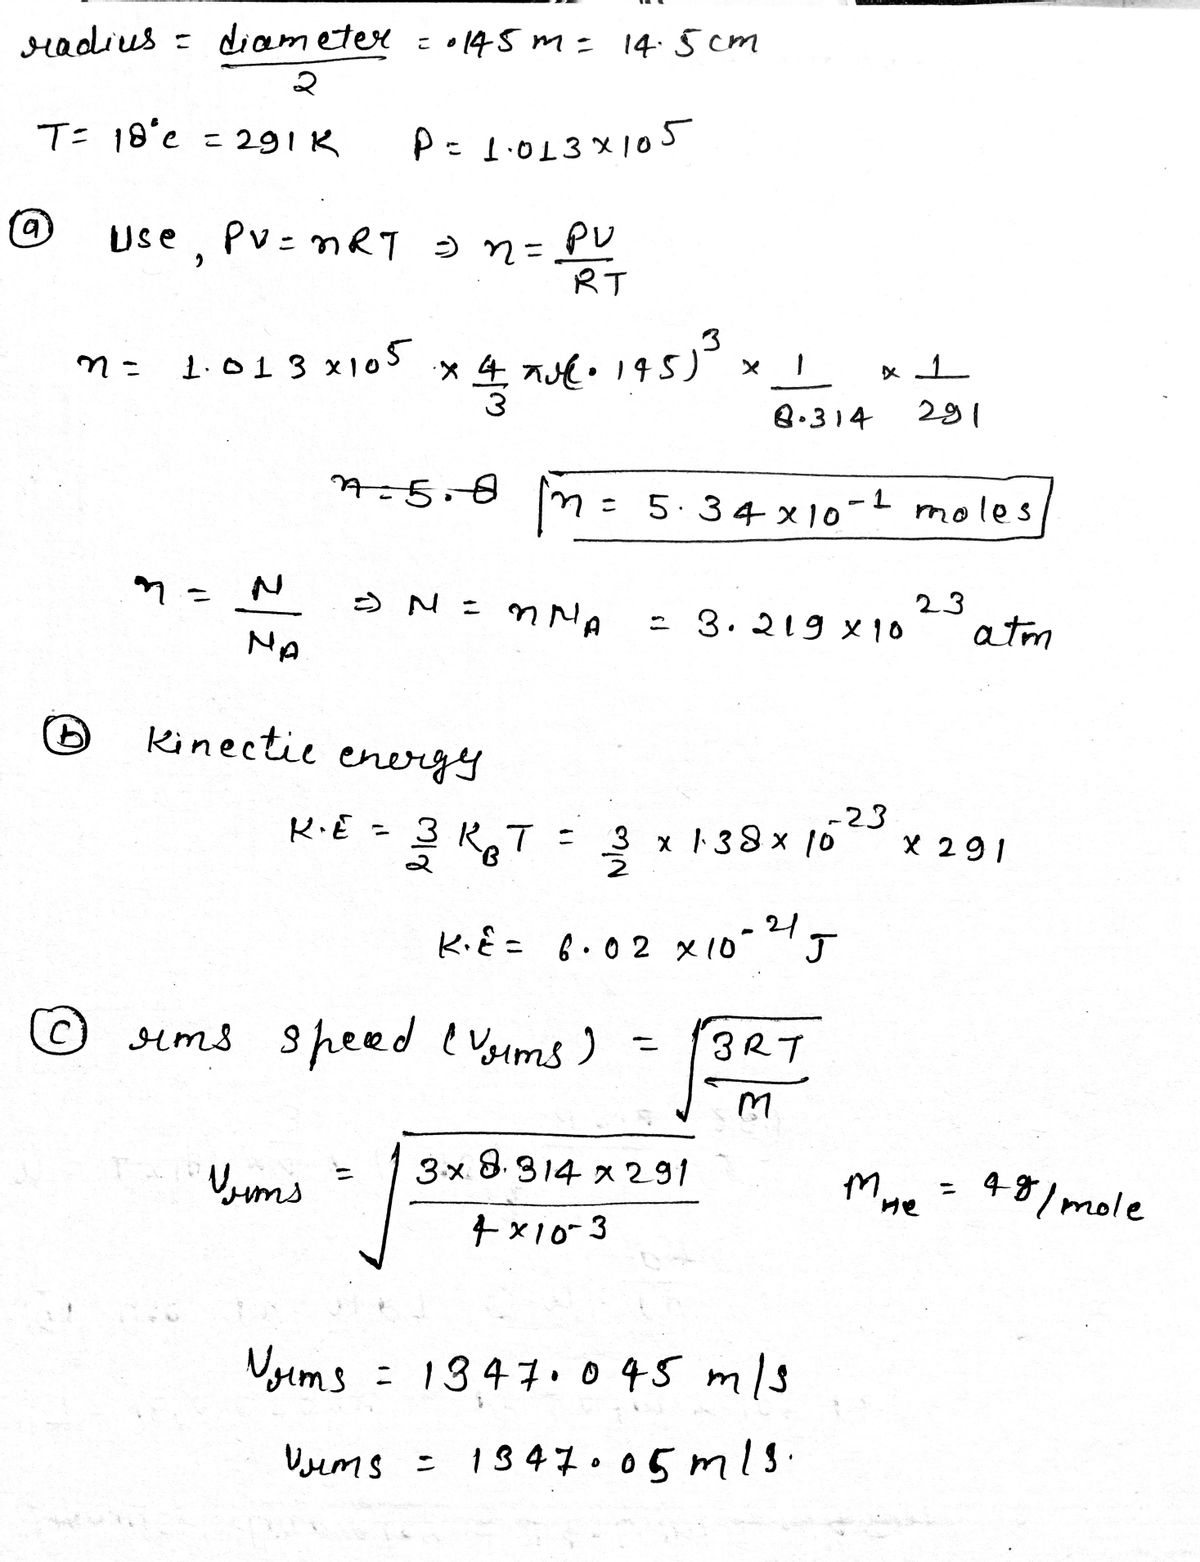 radius = diameter/2 = .145 m = 14.5 cm
T = 18°c = 291 K P = 1.013 × 10^5
(a) Use, PV = nRT ⇒ n = PV/RT
n = 1.013 × 10^5 × 4/3 π (.145)^3 × 1/8.314 × 1/291
n = 5.8 n = 5.34 × 10^-1 moles
n = N/NA ⇒ N = nNA = 3.219 × 10^23 atm
(b) Kinectic energy
K.E = 3/2 KB T = 3/2 × 1.38 × 10^-23 × 291
K.E = 6.02 × 10^-21 J
(c) rms speed (Vrms) = √(3RT/M)
Vrms = √(3 × 8.314 × 291/4 × 10^-3) MHe = 4g/mole
Vrms = 1347.045 m/s
Vrms = 1347.05 m/s.